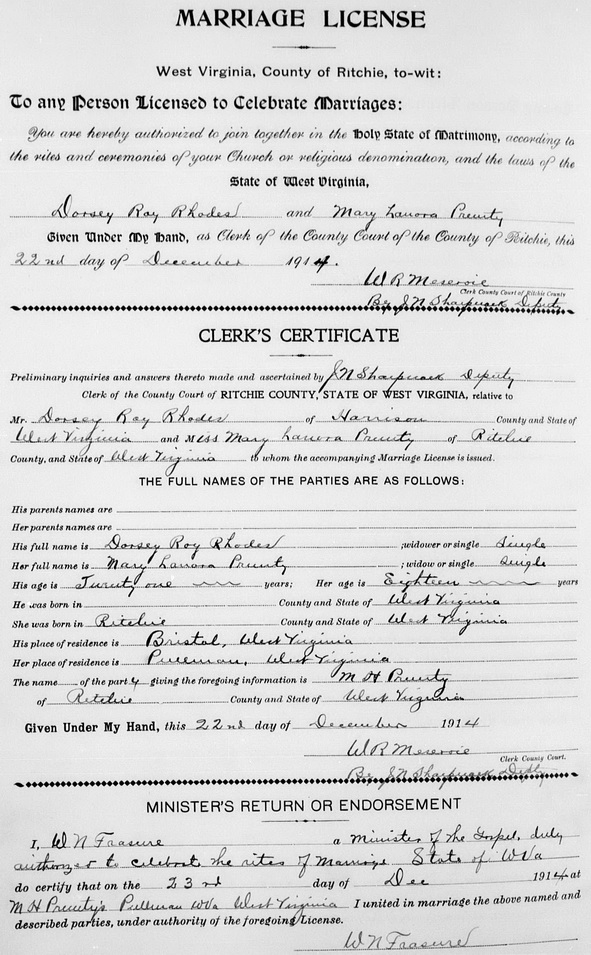 MARRIAGE LICENSE
West Virginia, County of Ritchie, to-wit:
To any Person Licensed to Celebrate Marriages:
You are hereby authorized to join together in the Holy State of Matrimony, according to
the rites and ceremonies of your Church or religious denomination, and the laws of the
State of West Virginia,
Dorsey Roy Rhodes and Mary Lanora Prunty
Given Under My Hand, as Clerk of the County Court of the County of Ritchie, this
22nd day of December 1914.
W R Meservie
Clerk County Court of Ritchie County
By J N Sharpnack Deputy
CLERK'S CERTIFICATE
Preliminary inquiries and answers thereto made and ascertained by J N Sharpnack Deputy
Clerk of the County Court of RITCHIE COUNTY, STATE OF WEST VIRGINIA, relative to
Mr. Dorsey Roy Rhodes of Harrison County and State of
West Virginia and Miss Mary Lanora Prunty of Ritchie
County, and State of West Virginia to whom the accompanying Marriage License is issued.
THE FULL NAMES OF THE PARTIES ARE AS FOLLOWS:
His parents names are
Her parents names are
His full name is Dorsey Roy Rhodes ; widower or single Single
Her full name is Mary Lanora Prunty ; widow or single Single
His age is Twenty one years; Her age is Eighteen years
He was born in County and State of West Virginia
She was born in Ritchie County and State of West Virginia
His place of residence is Bristol, West Virginia
Her place of residence is Pullman, West Virginia
The name of the party giving the foregoing information is M H Prunty
of Ritchie County and State of West Virginia
Given Under My Hand, this 22nd day of December 1914
W R Meservie
Clerk County Court.
By J N Sharpnack Depty
MINISTER'S RETURN OR ENDORSEMENT
I, W N Frasure a minister of the Gospel, duly
authorized to celebrate the rites of marriage State of W Va
do certify that on the 23rd day of Dec 1914 at
M H Prunty's Pullman W Va West Virginia I united in marriage the above named and
described parties, under authority of the foregoing License.
W N Frasure